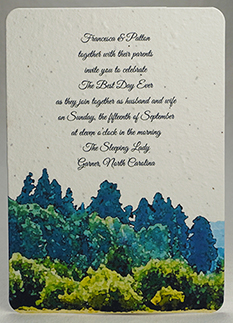 Francesca & Patton
together with their parents
invite you to celebrate
The Best Day Ever
as they join together as husband and wife
on Sunday, the fifteenth of September
at eleven o'clock in the morning
The Sleeping Lady
Garner, North Carolina